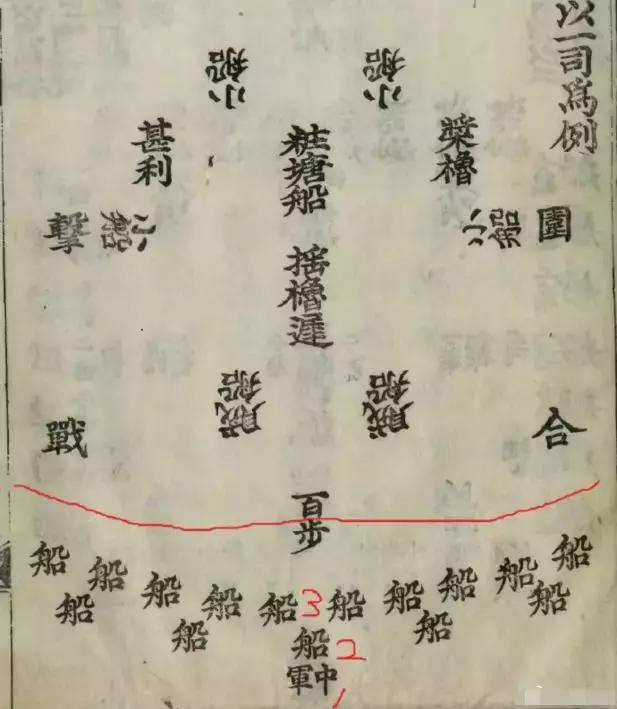 以一司爲例
小船
小船
槳櫓
甚利
粧塘船 搖櫓遲
圍
小船
小船
擊
賊船
賊船
合
戰
百步
船
船
船
船
船
船
船
3
船
船
船
船
船
船
船
船
2
中軍
1